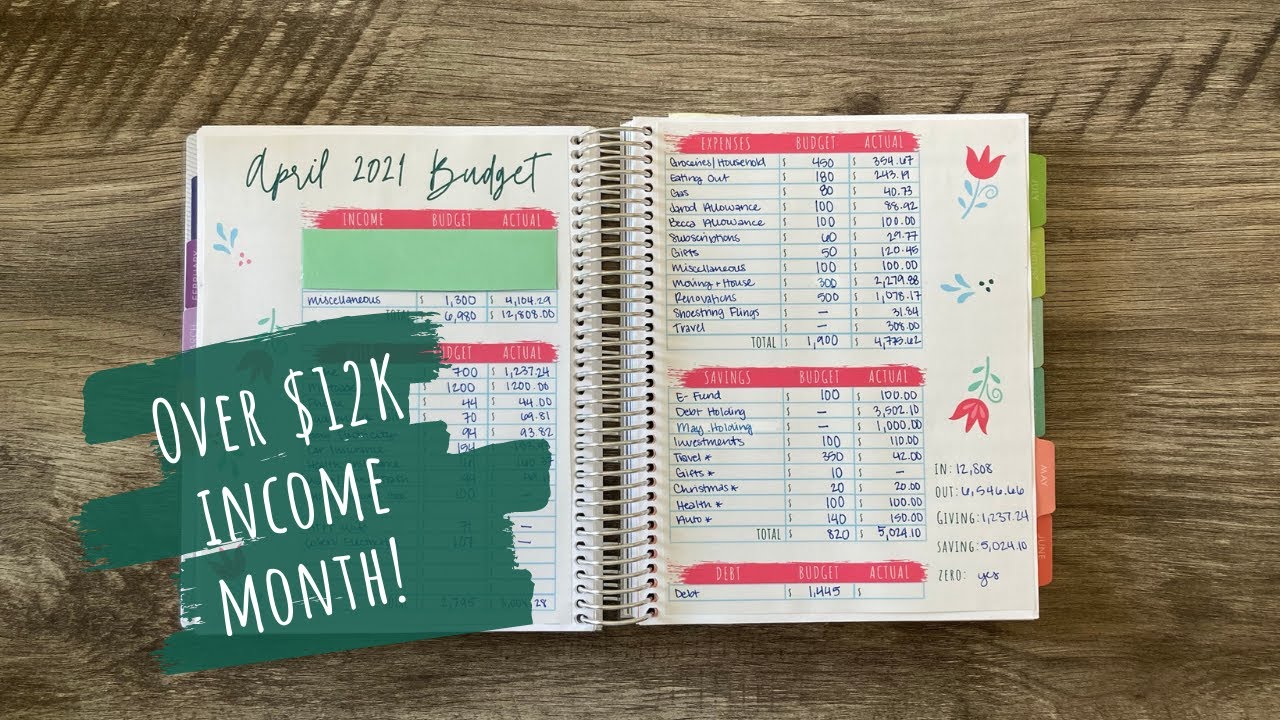 April 2021 Budget
INCOME BUDGET ACTUAL
miscellaneous $ 1,300 $ 4,104.29
TOTAL $ 6,980 $ 12,808.00
ACTUAL
700 $ 1,237.24
1200 $ 1200.00
44 $ 44.00
70 $ 69.81
94 $ 93.82
OVER $12K
INCOME
MONTH!
EXPENSES BUDGET ACTUAL
Groceries/Household $ 450 $ 354.67
Eating Out $ 180 $ 243.19
Gas $ 80 $ 40.73
Jarod Allowance $ 100 $ 88.92
Becca Allowance $ 100 $ 100.00
Subscriptions $ 60 $ 29.77
Gifts $ 50 $ 120.45
Miscellaneous $ 100 $ 100.00
Moving + House $ 300 $ 2,279.88
Renovations $ 500 $ 1,078.17
Shoestring Flings $ — $ 31.84
Travel $ — $ 308.00
TOTAL $ 1,900 $ 4,775.62
SAVINGS BUDGET ACTUAL
E-Fund $ 100 $ 100.00
Debt Holding $ — $ 3,502.10
May Holding $ — $ 1,000.00
Investments $ 100 $ 110.00
Travel * $ 350 $ 42.00
Gifts * $ 10 $ —
Christmas * $ 20 $ 20.00
Health * $ 100 $ 100.00
Auto * $ 140 $ 150.00
TOTAL $ 820 $ 5,024.10
DEBT BUDGET ACTUAL
Debt $ 1,445 $
IN: 12,808
OUT: 6,546.66
GIVING: 1,237.24
SAVING: 5,024.10
ZERO: yes
FEBRUARY
JULY
MAY
JUNE